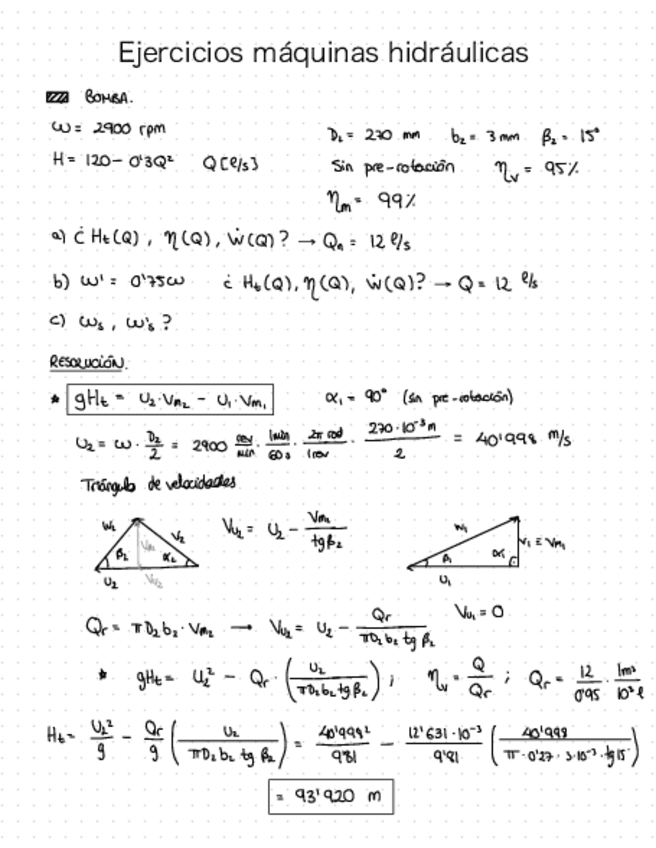 Ejercicios máquinas hidráulicas
BOMBA.
ω = 2900 rpm
D₂ = 270 mm b₂ = 3 mm β₂ = 15°
H = 120 - 0'3Q² Q[ℓ/s]
Sin pre-rotación ηv = 95%
ηm = 99%
a) ¿ Ht(Q), η(Q), Ẇ(Q)? → Qn = 12 ℓ/s
b) ω' = 0'75ω ¿ Ht(Q), η(Q), Ẇ(Q)? → Q = 12 ℓ/s
c) ωs, ω's ?
RESOLUCIÓN.
* gHt = U₂·Vm₂ - U₁·Vm₁ α₁ = 90° (sin pre-rotación)
U₂ = ω · D₂/2 = 2900 rev/min · 1min/60s · 2π rad/1rev · 270·10⁻³m/2 = 40'998 m/s
Triángulo de velocidades
W₂ V₂ Vm₂ β₂ α₂ U₂ Vu₂
Vu₂ = U₂ - Vm₂/tgβ₂
W₁ V₁ = Vm₁ β₁ α₁ U₁
Vu₁ = 0
Qr = πD₂b₂·Vm₂ → Vu₂ = U₂ - Qr/(πD₂b₂ tg β₂)
* gHt = U₂² - Qr · (U₂/(πD₂b₂tgβ₂)) ; ηv = Q/Qr ; Qr = 12/0'95 · 1m³/10³ℓ
Ht = U₂²/g - Qr/g (U₂/(πD₂b₂ tg β₂)) = 40'998²/9'81 - 12'631·10⁻³/9'81 (40'998/(π·0'27·3·10⁻³·tg15))
= 93'920 m